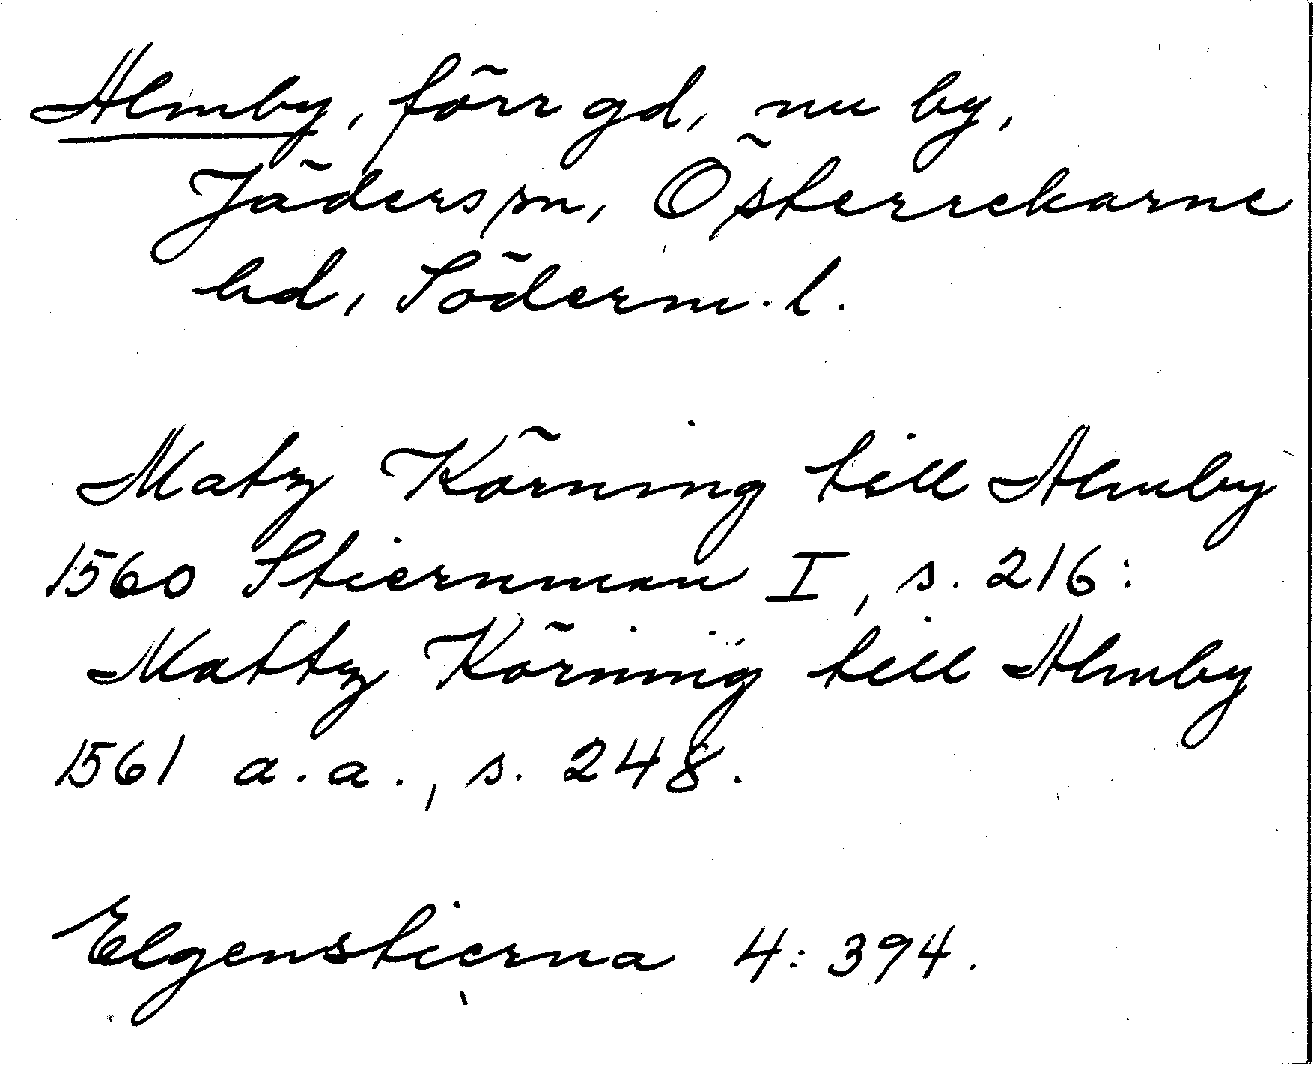 Almby, förr gd, nu by,
Jäders sn, Österrekarne
hd, Söderm. l.
Matz Körning till Almby
1560 Stiernman I, s. 216:
Mattz Körning till Almby
1561 a.a., s. 248.
Elgenstierna 4:394.